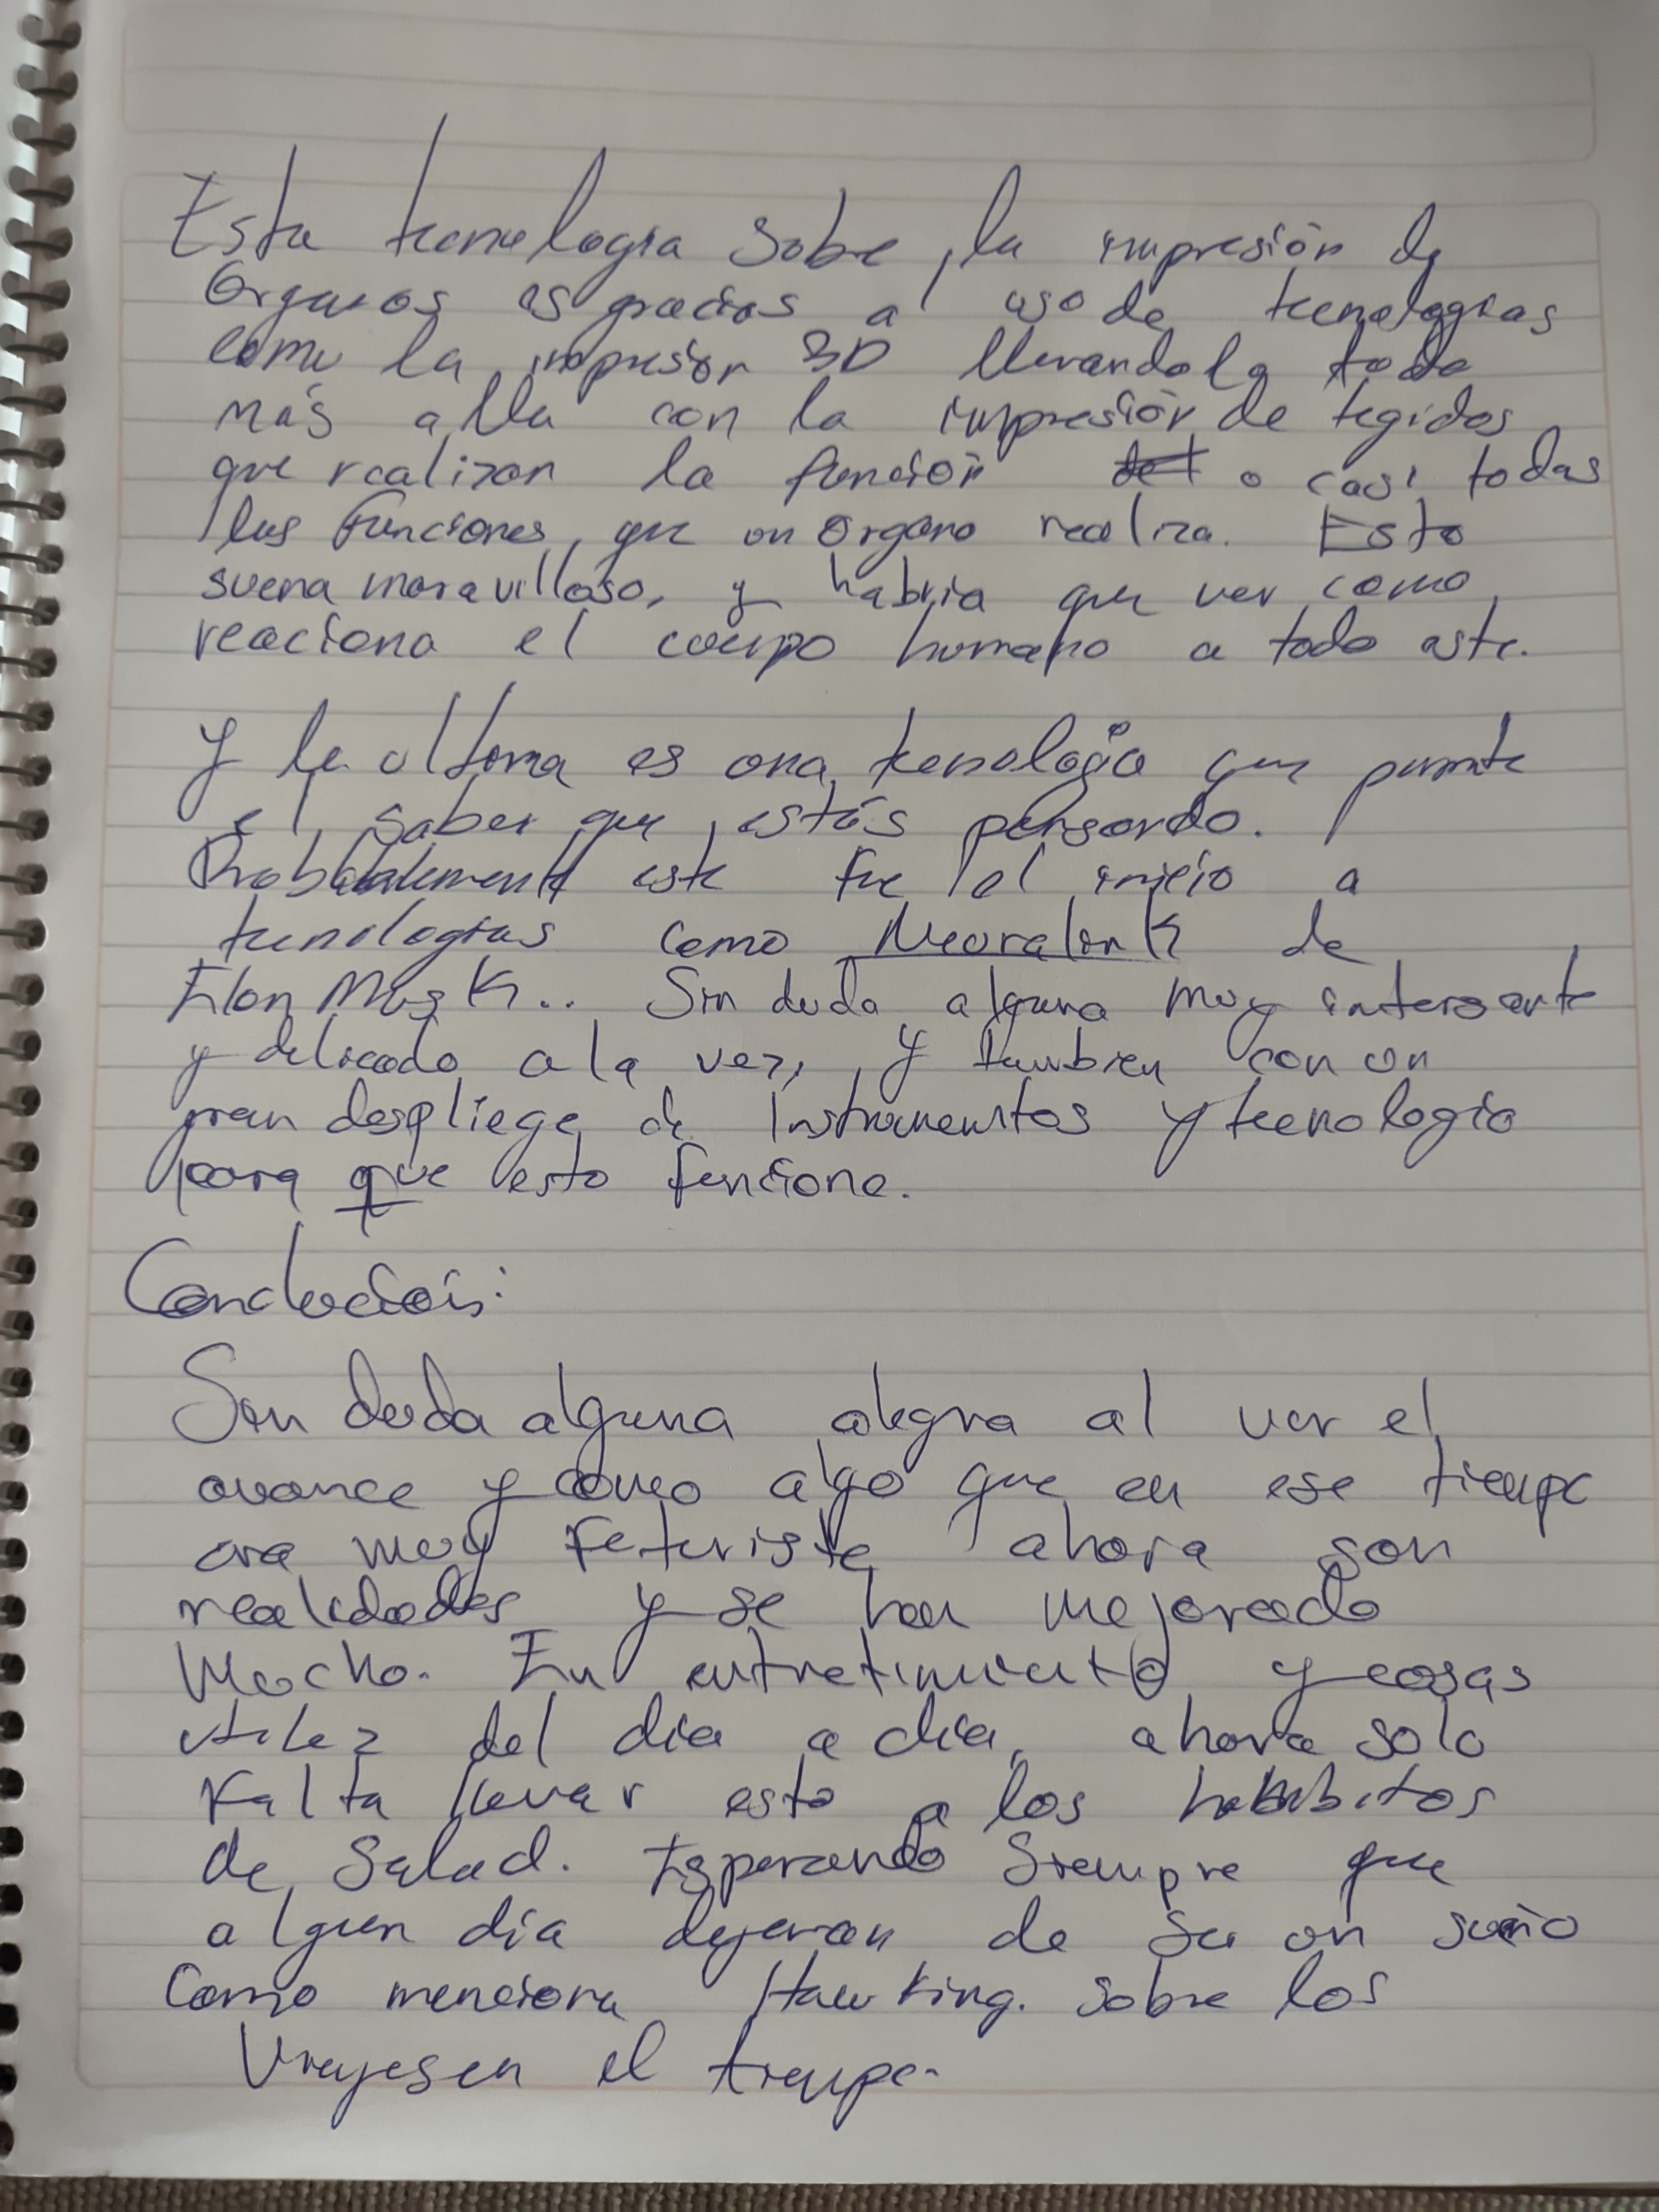 Esta tecnologia sobre la impresión de
Organos es gracias a uso de tecnologias
como la impresión 3D llevandola todo
más alla con la impresión de tegidos
que realizan la función o casi todas
las funciones que un organo realiza. Esto
suena maravilloso, y habria que ver como
reacciona el cuerpo humano a todo este.
Y la ultima es una tecnologia que permite
el saber que estás pensando.
Probablemente este fue el inicio a
tecnologias como Neuralink de
Elon Musk.. Sin duda alguna muy intersante
y delicado a la vez, y tambien con un
gran despliege de Instrumentos y tecnologia
para que esto funcione.
Conclución:
Sin duda alguna alegra al ver el
avance y como algo que en ese tiempo
era muy futurista ahora son
realidades y se han mejorado
Mucho. En entretimiento y cosas
utilez del dia a dia, ahora solo
Falta llevar esto a los
de Salud. Esperando Siempre que
algun dia dejeran de ser un sueño
Como menciona Hawking. sobre los
Viajes en el tiempo.